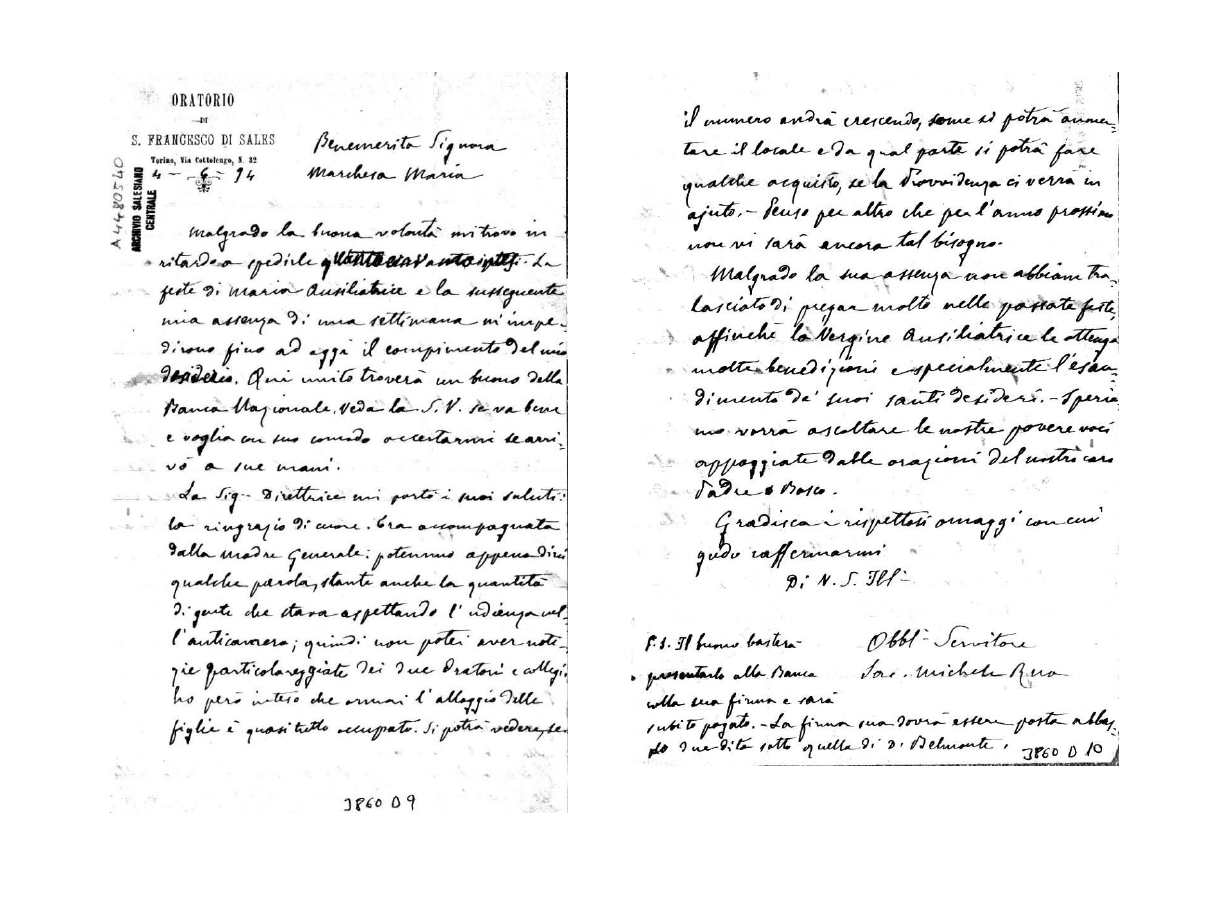 ORATORIO
DI
S. FRANCESCO DI SALES
Torino, Via Cottolengo, N. 32
4 - 6 - 94
A4480540
ARCHIVIO SALESIANO
CENTRALE
Benemerita Signora
Marchesa Maria
Malgrado la buona volontà mi trovo in
ritardo a spedirle La
feste di Maria Ausiliatrice e la susseguente
mia assenza di una settimana m'impe-
dirono fino ad oggi il compimento del mio
desiderio. Qui unito troverà un buono della
Banca Nazionale. Veda la S. V. se va bene
e voglia con suo comodo accertarmi se arri-
vò a sue mani.
La Sig- Direttrice mi portò i suoi saluti:
la ringrazio di cuore. Era accompagnata
dalla Madre Generale: potemmo appena dirci
qualche parola, stante anche la quantità
di gente che stava aspettando l'udienza nel-
l'anticamera; quindi non potei aver noti-
zie particolareggiate dei due Oratori e collegi,
ho però inteso che ormai l'alloggio delle
figlie è quasi tutto occupato. Si potrà vedere, se
J860 D9
il numero andrà crescendo, come si potrà aumen-
tare il locale e da qual parte si potrà fare
qualche acquisto, se la Provvidenza ci verrà in
ajuto. - Penso per altro che per l'anno prossimo
non vi sarà ancora tal bisogno.
Malgrado la sua assenza non abbiam tra-
lasciato di pregar molto nelle passate feste,
affinchè la Vergine Ausiliatrice le ottenga
molte benedizioni e specialmente l'esau-
dimento de' suoi santi desideri. - Speria-
mo vorrà ascoltare le nostre povere voci
appoggiate dalle orazioni del nostro caro
Padre D Bosco.
Gradisca i rispettosi omaggi con cui
godo raffermarmi
Di N. S. Ill-
Obbl- Servitore
Sac. Michele Rua
P.S. Il buono basterà
presentarlo alla Banca
colla sua firma e sarà
subito pagato. - La firma sua dovrà essere posta abbas-
so due dita sotto quella di D. Belmonte.
J860 D 10